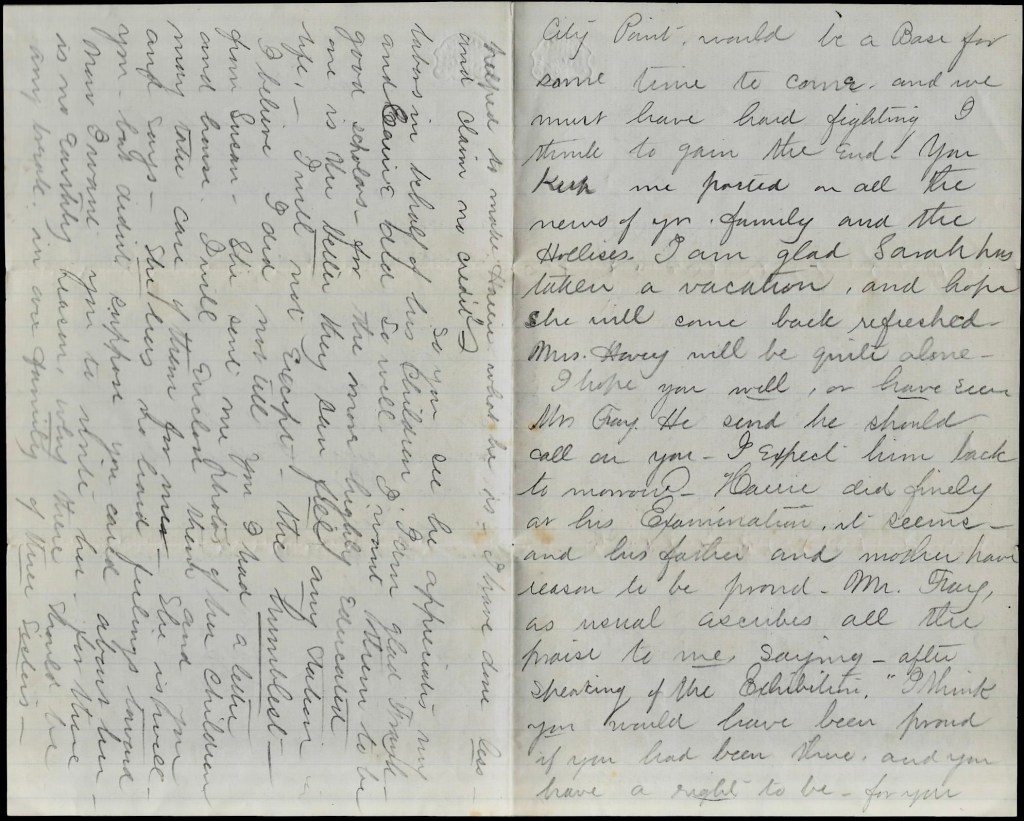 City Point, would be a Base for
some time to come. and we
must have hard fighting I
think to gain the End! You
Keep me posted on all the
news of yr. family and the
Hollises. I am glad Sarah has
taken a vacation, and hope
she will come back refreshed -
Mrs. Havey will be quite alone -
I hope you will, or have seen
Mr Fay. He said he should
call on you - I Expect him back
to morrow - Harrie did finely
at his Examination, it seems -
and his father and mother have
reason to be proud - Mr. Fay,
as usual ascribes all the
praise to me, saying - after
speaking of the Exhibition, "I think
you would have been proud
if you had been there, and you
have a right to be - for you
helped to make Harrie what he is - I have done less -
and claim no credit"
So you see he appreciates my
labors in behalf of his Children. I am glad Frank -
and Carrie did so well. I want them to be
good scholars - for the more highly Educated
one is the better they can fill any station in
life. - I will not Except the humblest -
I believe I did not tell you I had a letter
from Susan - She sent me photos of her Children
and house. I will Enclose them and you
may take care of them for me - She is well -
and says - She bears no hard feelings toward
you - but didn't suppose you cared about her -
Now I want you to write her - for there
is no Earthly reason why there should be
any break in our family of three Sisters -